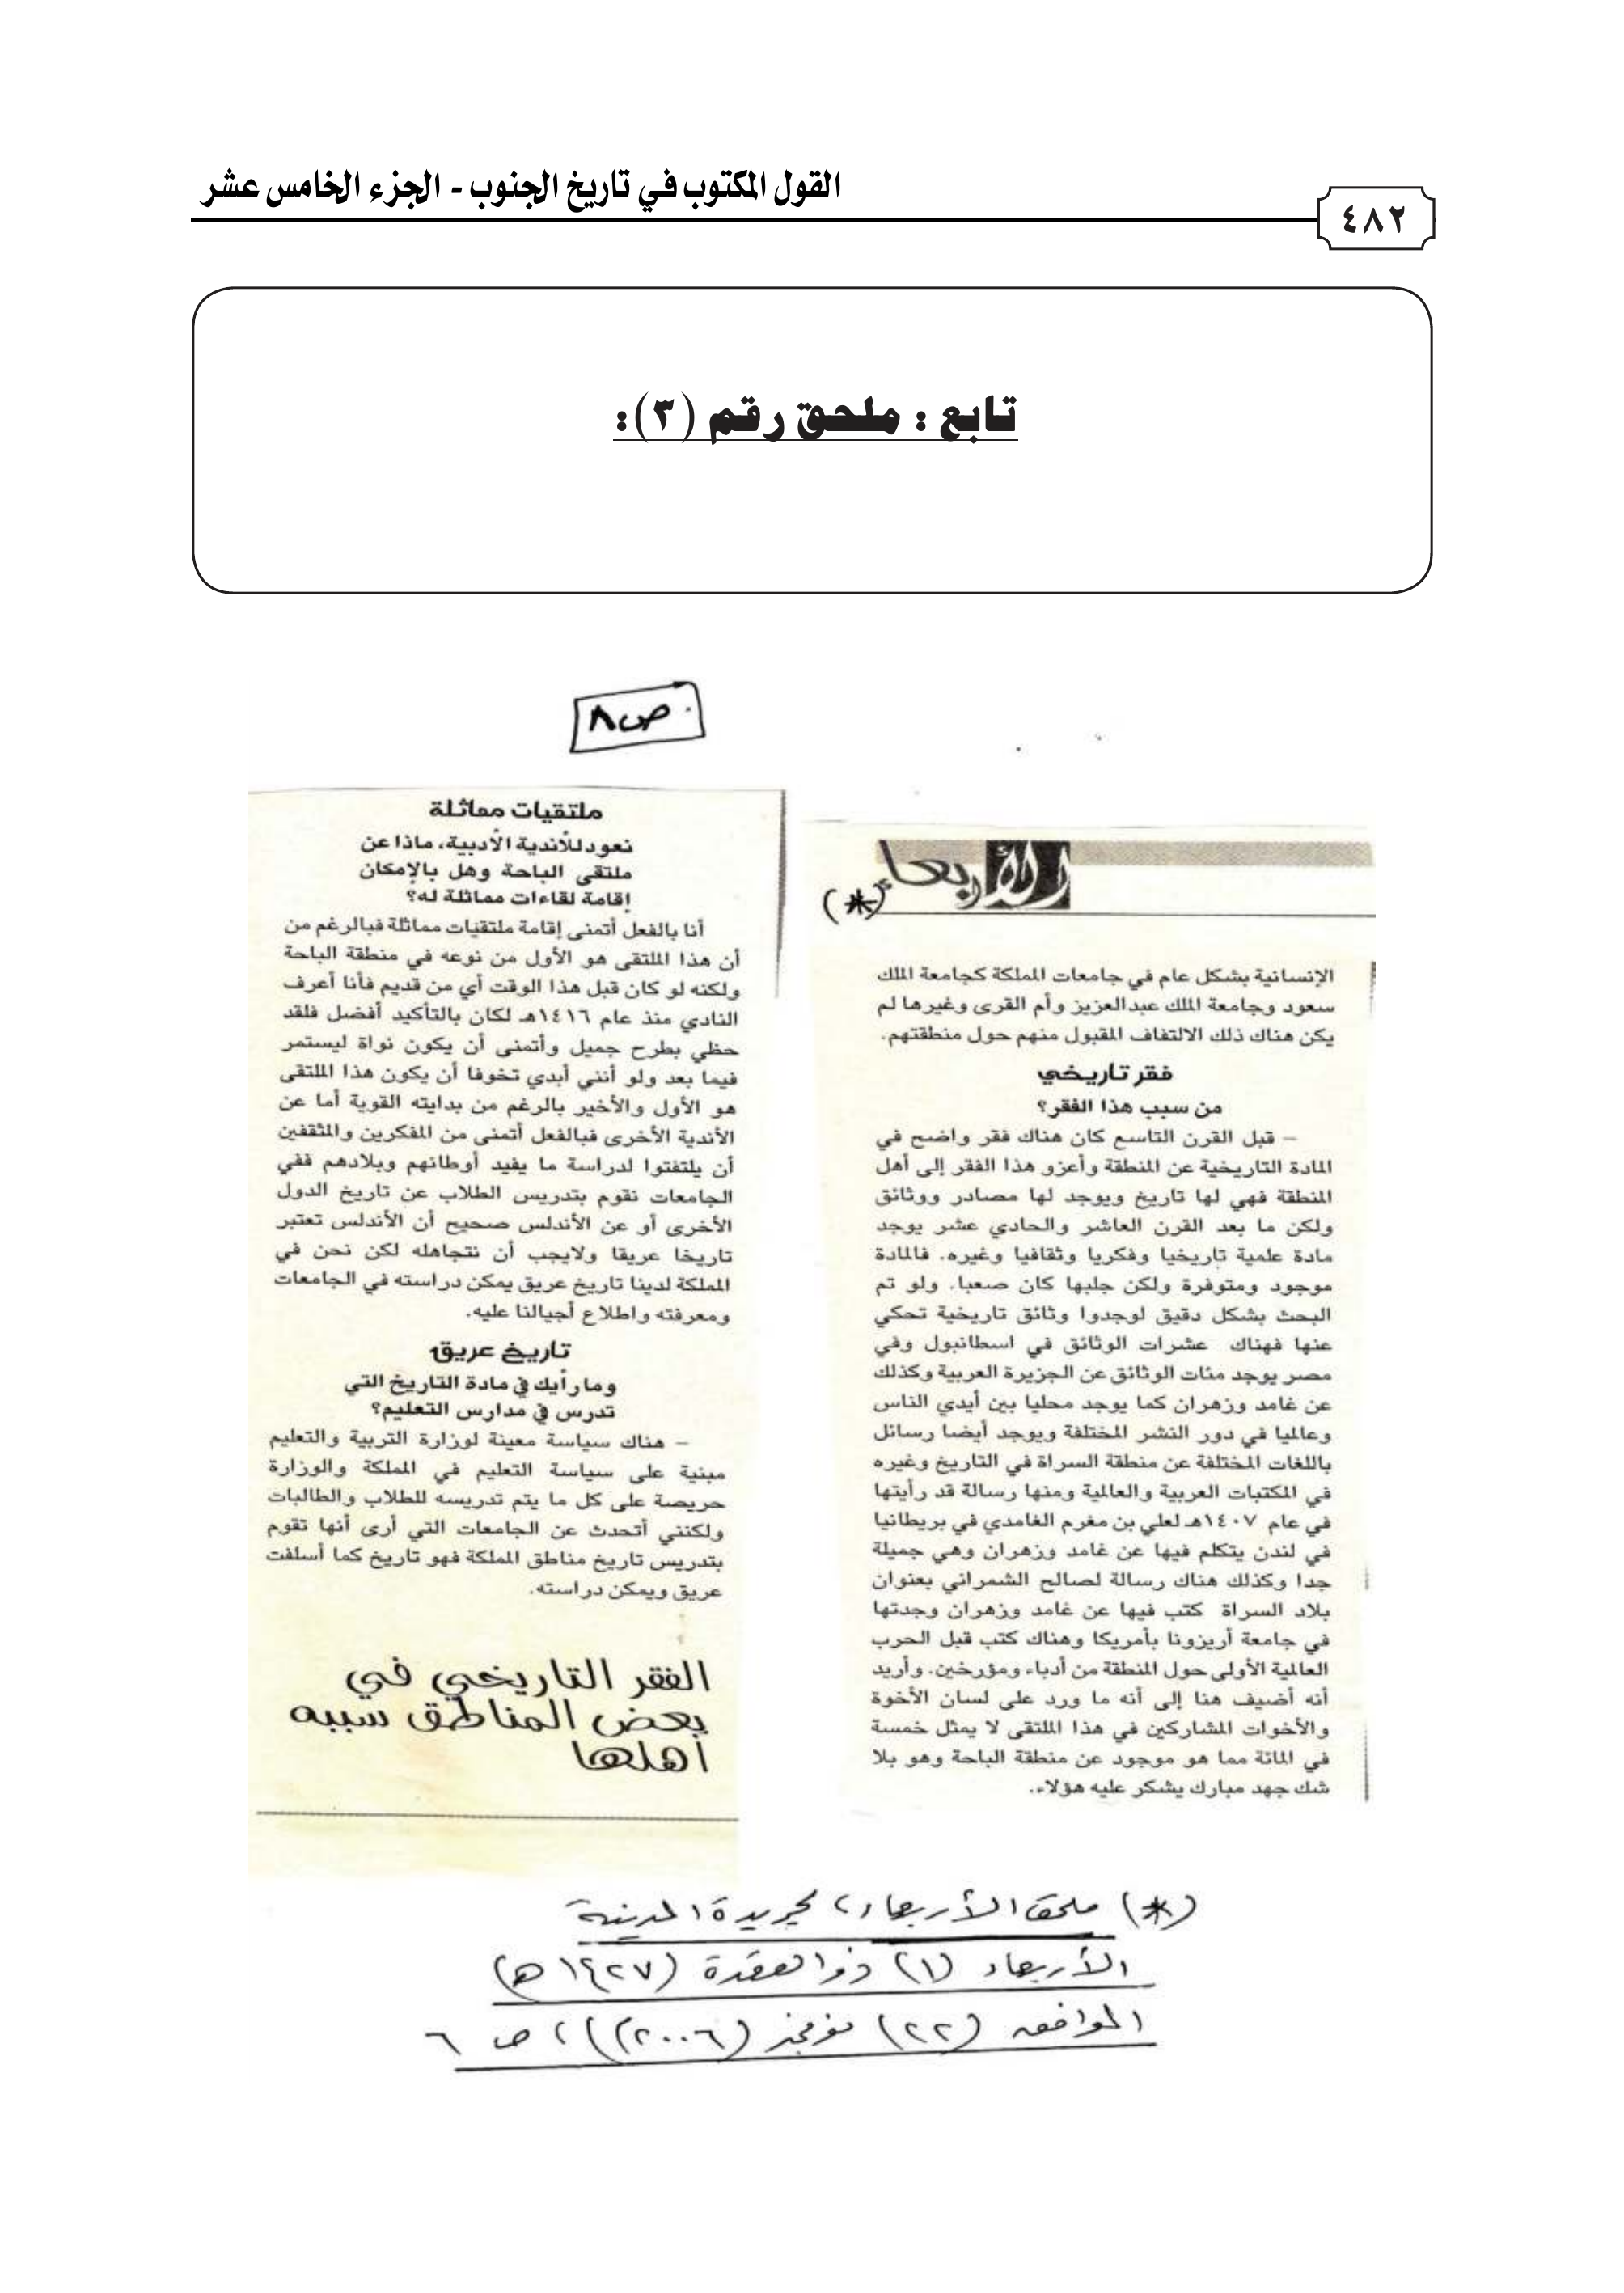 القول المكتوب في تاريخ الجنوب - الجزء الخامس عشر
٤٨٢
تابع : ملحق رقم (٣):
ص٨
الأربعاء
(*)
الإنسانية بشكل عام في جامعات المملكة كجامعة الملك
سعود وجامعة الملك عبدالعزيز وأم القرى وغيرها لم
يكن هناك ذلك الالتفاف المقبول منهم حول منطقتهم.
فقر تاريخي
من سبب هذا الفقر؟
– قبل القرن التاسع كان هناك فقر واضح في
المادة التاريخية عن المنطقة وأعزو هذا الفقر إلى أهل
المنطقة فهي لها تاريخ ويوجد لها مصادر ووثائق
ولكن ما بعد القرن العاشر والحادي عشر يوجد
مادة علمية تاريخيا وفكريا وثقافيا وغيره. فالمادة
موجود ومتوفرة ولكن جلبها كان صعبا. ولو تم
البحث بشكل دقيق لوجدوا وثائق تاريخية تحكي
عنها فهناك عشرات الوثائق في اسطانبول وفي
مصر يوجد مئات الوثائق عن الجزيرة العربية وكذلك
عن غامد وزهران كما يوجد محليا بين أيدي الناس
وعالميا في دور النشر المختلفة ويوجد أيضا رسائل
باللغات المختلفة عن منطقة السراة في التاريخ وغيره
في المكتبات العربية والعالمية ومنها رسالة قد رأيتها
في عام ١٤٠٧هـ لعلي بن مغرم الغامدي في بريطانيا
في لندن يتكلم فيها عن غامد وزهران وهي جميلة
جدا وكذلك هناك رسالة لصالح الشمراني بعنوان
بلاد السراة كتب فيها عن غامد وزهران وجدتها
في جامعة أريزونا بأمريكا وهناك كتب قبل الحرب
العالمية الأولى حول المنطقة من أدباء ومؤرخين. وأريد
أنه أضيف هنا إلى أنه ما ورد على لسان الأخوة
والأخوات المشاركين في هذا الملتقى لا يمثل خمسة
في المائة مما هو موجود عن منطقة الباحة وهو بلا
شك جهد مبارك يشكر عليه هؤلاء.
ملتقيات مماثلة
نعود للأندية الأدبية، ماذا عن
ملتقى الباحة وهل بالإمكان
إقامة لقاءات مماثلة له؟
أنا بالفعل أتمنى إقامة ملتقيات مماثلة فبالرغم من
أن هذا الملتقى هو الأول من نوعه في منطقة الباحة
ولكنه لو كان قبل هذا الوقت أي من قديم فأنا أعرف
النادي منذ عام ١٤١٦هـ لكان بالتأكيد أفضل فلقد
حظي بطرح جميل وأتمنى أن يكون نواة ليستمر
فيما بعد ولو أنني أبدي تخوفا أن يكون هذا الملتقى
هو الأول والأخير بالرغم من بدايته القوية أما عن
الأندية الأخرى فبالفعل أتمنى من المفكرين والمثقفين
أن يلتفتوا لدراسة ما يفيد أوطانهم وبلادهم ففي
الجامعات نقوم بتدريس الطلاب عن تاريخ الدول
الأخرى أو عن الأندلس صحيح أن الأندلس تعتبر
تاريخا عريقا ولايجب أن نتجاهله لكن نحن في
المملكة لدينا تاريخ عريق يمكن دراسته في الجامعات
ومعرفته واطلاع أجيالنا عليه.
تاريخ عريق
وما رأيك في مادة التاريخ التي
تدرس في مدارس التعليم؟
– هناك سياسة معينة لوزارة التربية والتعليم
مبنية على سياسة التعليم في المملكة والوزارة
حريصة على كل ما يتم تدريسه للطلاب والطالبات
ولكنني أتحدث عن الجامعات التي أرى أنها تقوم
بتدريس تاريخ مناطق المملكة فهو تاريخ كما أسلفت
عريق ويمكن دراسته.
الفقر التاريخي في
بعض المناطق سببه
أهلها
(*) ملحق الأربعاء، لجريدة المدينة
الأربعاء (١) ذو القعدة (١٤٢٧هـ)
الموافق (٢٢) نوفمبر (٢٠٠٦م)، ص ٦